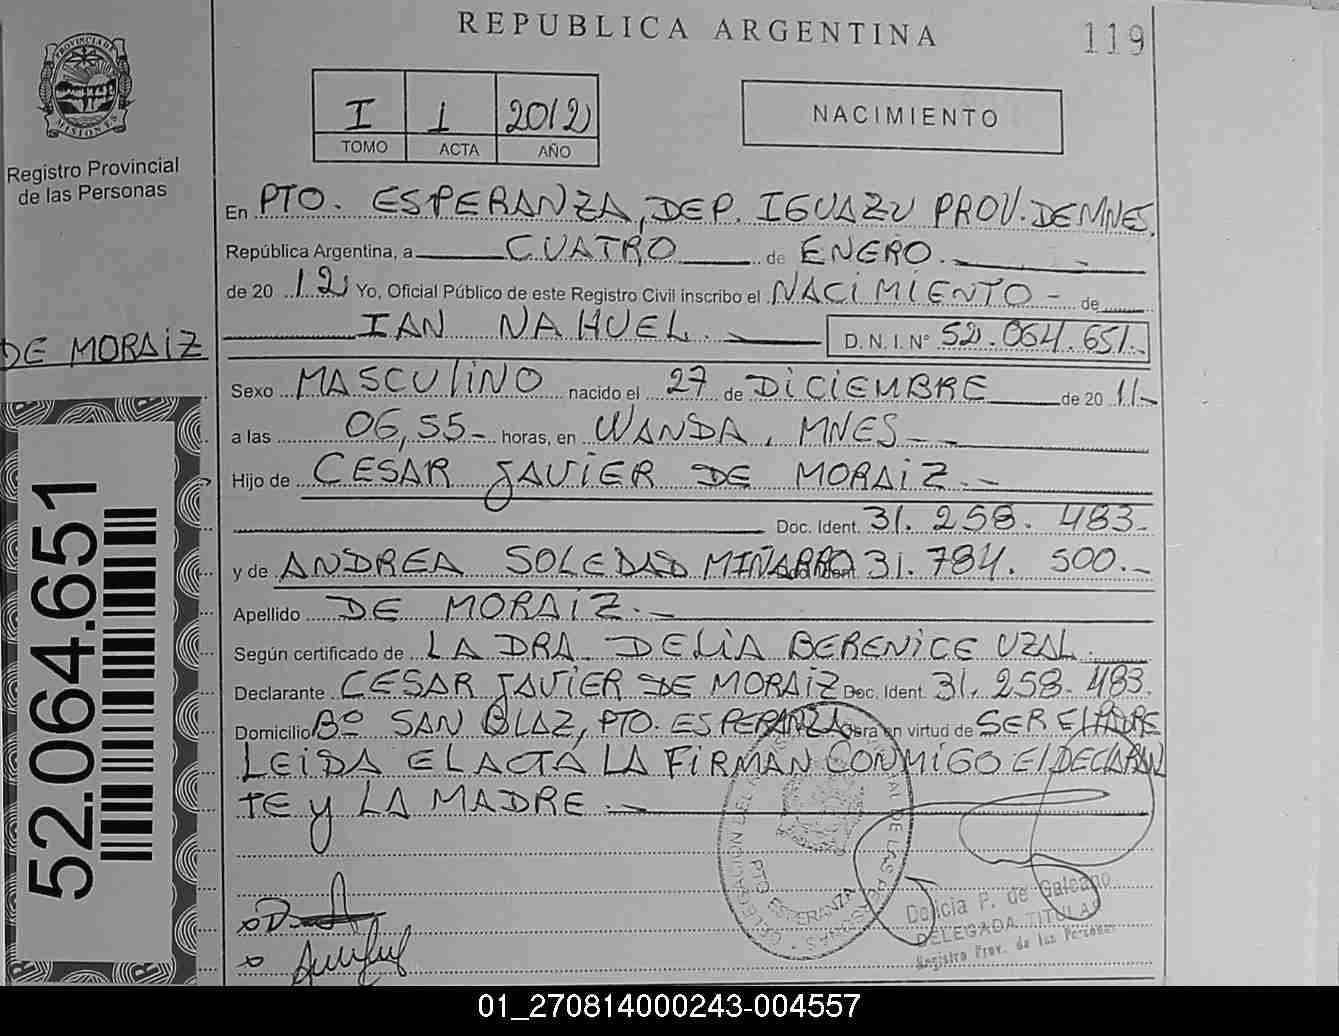 REPUBLICA ARGENTINA
119
PROVINCIA DE MISIONES
Registro Provincial
de las Personas
I 1 2012
TOMO ACTA AÑO
NACIMIENTO
En PTO. ESPERANZA, DEP. IGUAZU PROV. DE MNES.
República Argentina, a CUATRO de ENERO.
de 20 12 Yo, Oficial Público de este Registro Civil inscribo el NACIMIENTO - de
IAN NAHUEL. D. N. I. N° 52.064.651.-
DE MORAIZ
Sexo MASCULINO nacido el 27 de DICIEMBRE de 20 11.-
a las 06,55- horas, en WANDA, MNES-
Hijo de CESAR JAVIER DE MORAIZ.-
Doc. Ident. 31. 258. 483-
y de ANDREA SOLEDAD MIÑARRO Doc. Ident. 31. 784. 500.-
Apellido DE MORAIZ.-
Según certificado de LA DRA. DELIA BERENICE UZAL.
Declarante CESAR JAVIER DE MORAIZ Doc. Ident. 31. 258. 483.
Domicilio B° SAN BLAZ, PTO. ESPERANZA Obra en virtud de SER El PADRE
LEIDA EL ACTA LA FIRMAN CONMIGO El DECLARAN
TE y LA MADRE.-
52.064.651
DELEGACION DEL REGISTRO PROVINCIAL DE LAS PERSONAS
PTO. ESPERANZA
Delicia P. de Galeano
DELEGADA TITULAR
Registro Prov. de las Personas
01_270814000243-004557